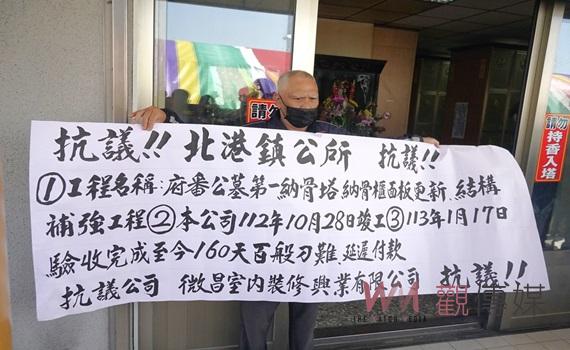 抗議!! 北港鎮公所 抗議!!
①工程名稱:府番公墓第一納骨塔納骨櫃面板更新、結構
補強工程②本公司112年10月28日竣工③113年1月17日
驗收完成至今160天百般刁難、延遲付款
抗議公司 微昌室內裝修興業有限公司 抗議!!
請勿
請勿
持香入塔
觀傳媒